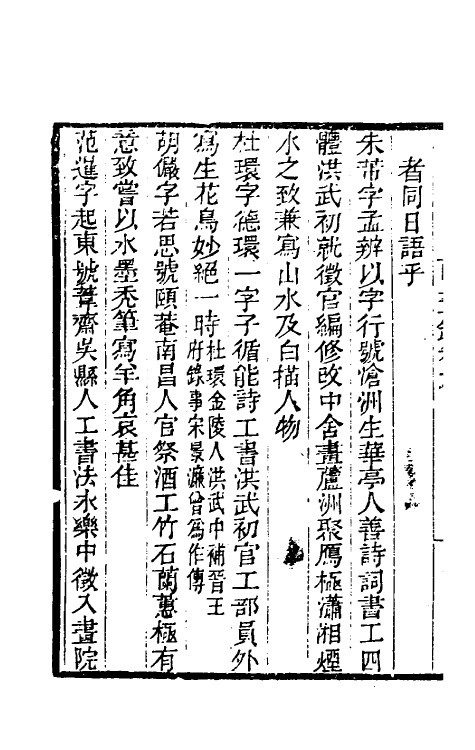 者同日語乎
朱芾字孟辨以字行號滄洲生華亭人善詩詞書工四
體洪武初就徵官編修改中舍畫蘆洲聚鴈極瀟湘煙
水之致兼寫山水及白描人物
杜環字德環一字子循能詩工書洪武初官工部員外
寫生花鳥妙絕一時杜環金陵人洪武中補晉王
府錄事宋景濂曾爲作傳
胡儼字若思號頤菴南昌人官祭酒工竹石蘭蕙極有
意致嘗以水墨禿筆寫羊角哀墓佳
范暹字起東號葦齋吳縣人工書法永樂中徵入畫院